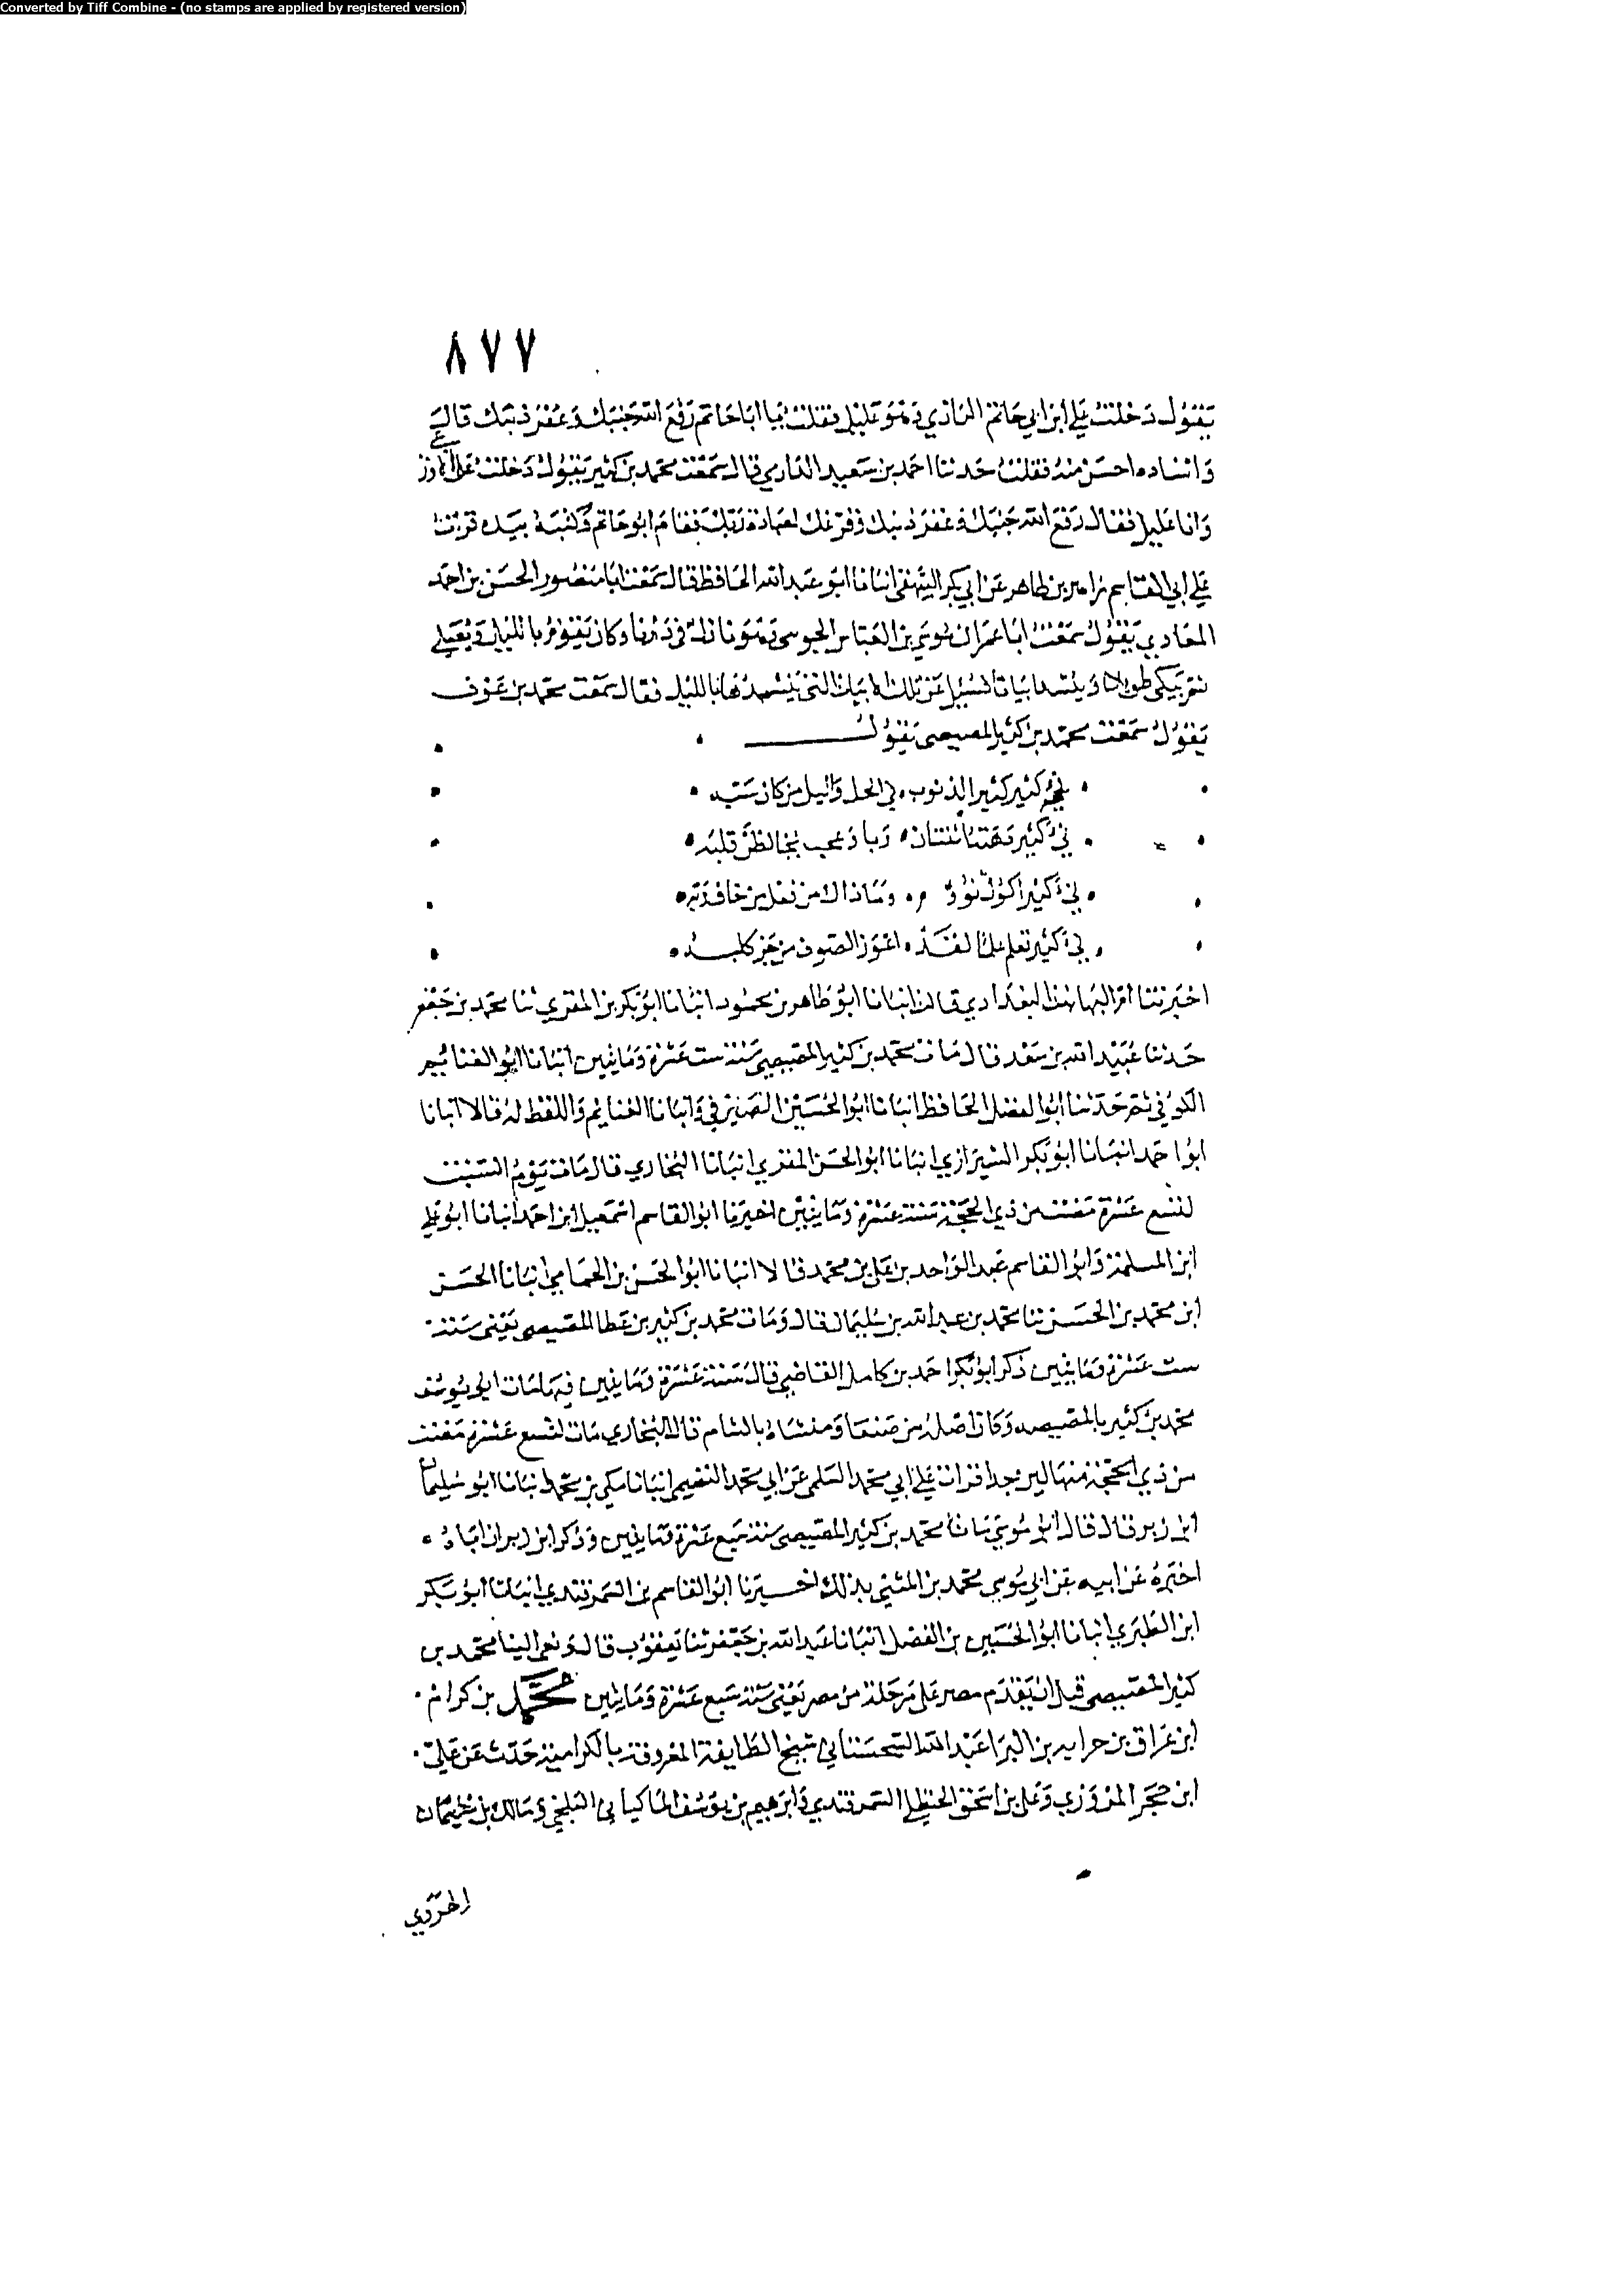 Converted by Tiff Combine - (no stamps are applied by registered version)
٨٧٧
يقول دخلت على ابن ابي حاتم الرازي وهو عليل فقلت يا ابا حاتم رفع الله جنبك وغفر ذنبك قال
واسناده احسن منه فقلت حدثنا احمد بن سعيد الداري قال سمعت محمد بن كثير يقول دخلت على
وانا عليل فقال رفع الله جنبك وغفر ذنبك وفرغك لعبادة ربك فقام ابو حاتم وكتبه بيده قرأت
على ابي القاسم زاهر بن طاهر عن ابي بكر البيهقي انبانا ابو عبد الله الحافظ قال سمعت ابا منصور الحسن بن احمد
المعادي يقول سمعت ابا عمران موسى بن العباس الجويني وهو نازل في دارنا وكان يقوم بالليل ويصلي
ثم يبكي طويلا وينشد ابياتا فسئل عن تلك الابيات التي ينشدها بالليل فقال سمعت محمد بن عوف
يقول سمعت محمد بن كثير المصيصي يقول
بني كثير كثير الذنوب في الحل والبل من كان سبه
بني كثير دهته اثنتان رياء وعجب يخالطن قلبه
بني كثير اكول نؤوم وما ذاك من فعل من خاف ربه
بني كثير تعلم علما لقد اعوز الصوف من جز كلبه
اخبرتنا ام البهاء بنت البغدادي قالت انبانا ابو طاهر بن محمود انبانا ابو بكر بن المقرئ ثنا محمد بن جعفر
حدثنا عبيد الله بن سعد قال مات محمد بن كثير المصيصي سنة ست عشرة ومايتين انبانا ابو الغنائم
الكوفي ثم حدثنا ابو الفضل الحافظ انبانا ابو الحسين الصيرفي وانبانا الغنايم واللفظ له قالا انبانا
ابو احمد انبانا ابو بكر الشيرازي انبانا ابو الحسن المقرئ انبانا البخاري قال مات يوم السبت
لتسع عشرة مضت من ذي الحجة سنة ست عشرة ومايتين اخبرنا ابو القاسم اسمعيل ابن احمد انبانا ابو علي
ابن المسلمة وابو القاسم عبد الواحد بن علي بن محمد قالا انبانا ابو الحسن بن الحمامي انبانا الحسن
ابن محمد بن الحسن ثنا محمد بن عبد الله بن سليمان قال ومات محمد بن كثير بن عطا المصيصي يعني سنة
ست عشرة ومايتين ذكر ابو بكر احمد بن كامل القاضي قال سنة ست عشرة ومايتين فيها مات ابو يوسف
محمد بن كثير بالمصيصه وكان اصله من صنعا ومنشاه بالشام قال البخاري مات لتسع عشرة مضت
من ذي الحجة منها قرات على ابي محمد السلمي عن ابي محمد التميمي انبانا مكي بن محمد انبانا ابو سليمان
ابن زبر قال قال ابو موسى مات محمد بن كثير المصيصي سنة سبع عشرة ومايتين وذكر ابن زبر ان اباه
اخبره عن ابيه عن ابي موسى محمد بن المثنى بذلك اخبرنا ابو القاسم بن السمرقندي انبانا ابو بكر
ابن الطبري انبانا ابو الحسين بن الفضل انبانا عبد الله بن جعفر ثنا يعقوب قال ونعي الينا محمد بن
كثير المصيصي قبل ان يقدم مصر على مرحلة من مصر يعني سنة سبع عشرة ومايتين محمد بن كرام
ابن عراق بن حرابه بن البرا عبد الله السجستاني شيخ الطايفة المعروفة بالكرامية حدث عن علي
ابن حجر المروزي وعلي بن اسحق الحنظلي السمرقندي وابرهيم بن يوسف الماكياني البلخي ومالك بن سليمان
الهروي